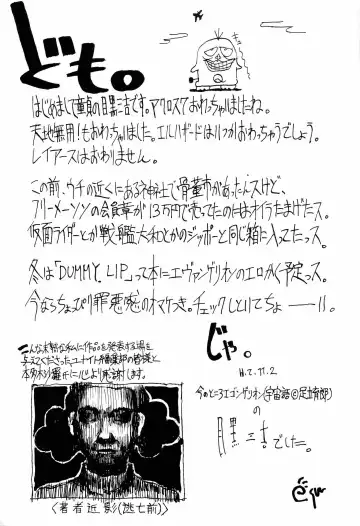 ども。
はじめまして童貞の目黒三吉です。アクロスマでおわっちゃいましたね。
天地無用!もおわっちゃいました。エルハザードはいつかおわっちゃうでしょう。
レイアースはおわりません。
この前、ウチの近くにある神社で骨董市があったんスけど、
フリーメーソンの会員章が13万円で売ってたのにはオイラたまげたっス。
仮面ライダーとか戦艦大和とかのジッポーと同じ箱に入ってたっス。
冬は「DUMMY LIP」って本にエヴァンゲリオンのエロかく予定っス。
今ならちょっぴり罪悪感のオマケつき。チェックしといてちょーーだい。
じゃ。
こんな未熟な私に作品を発表する場を
与えてくださったユナイト編集部の皆様と
に心より感謝します。
H.7.11.2
の
目黒三吉でした。
<著者近影(逃亡前)>